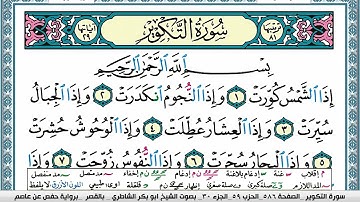 ترتيبها ٨١ سُورَةُ التَّكْوِيرِ آياتها ٢٩
بِسْمِ اللَّهِ الرَّحْمَٰنِ الرَّحِيمِ
إِذَا الشَّمْسُ كُوِّرَتْ ١ وَإِذَا النُّجُومُ انكَدَرَتْ ٢ وَإِذَا الْجِبَالُ
سُيِّرَتْ ٣ وَإِذَا الْعِشَارُ عُطِّلَتْ ٤ وَإِذَا الْوُحُوشُ حُشِرَتْ
٥ وَإِذَا الْبِحَارُ سُجِّرَتْ ٦ وَإِذَا النُّفُوسُ زُوِّجَتْ ٧ وَإِذَا
سورة التكوير الصفحة ٥٨٦ الحزب ٥٩ الجزء ٣٠ بصوت الشيخ أبو بكر الشاطري - بالقصر - برواية حفص عن عاصم